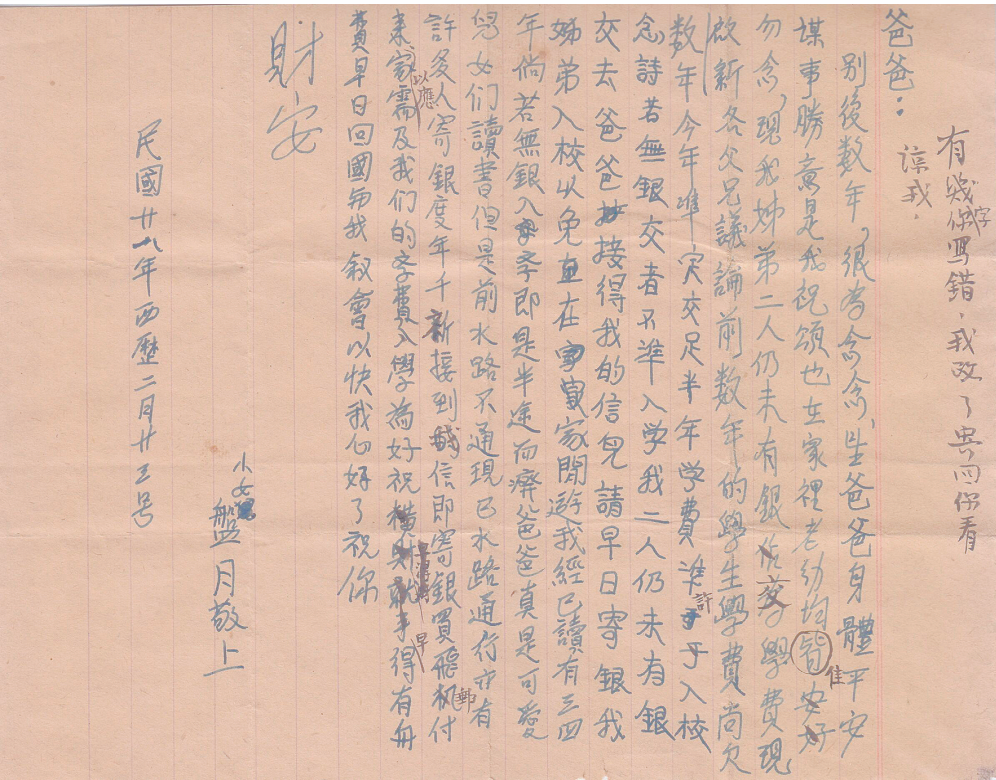 有幾個字写錯，我改了寄回你看
諒我，
爸爸：
別後数年，很為念念，望爸爸身體平安
謀事勝意是我祝頌也在家裡老幼均皆安好
勿念，現我姊弟二人仍未有銀交學費現
啟新各父兄議論前数年的學生學費尚欠
数年今年準定交足半年学費準許于入校
念詩若無銀交者不準入学我二人仍未有銀
交去爸爸接得我的信見請早日寄銀我
姊弟入校以免在家閒遊我經已讀有三四
年倘若無銀入学即是半途而癈爸爸真是可愛
兒女们讀書但是前水路不通現已水路通行亦有
許多人寄銀度年千新接到信即寄銀買飛机郵付
来，以應家需及我们的学費入學為好祝橫財就手早得有舟
費早日回國与我敘會以快我心好了祝你
財安
小女
盤月敬上
民國廿八年西歷二月廿三号